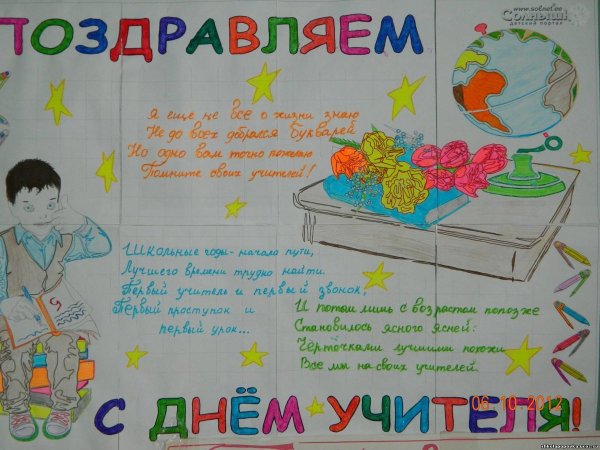 ПОЗДРАВЛЯЕМ
www.solnet.ee
Солнышко
детский портал
Я еще не все о жизни знаю
Не до всех добрался букварей
Но одно вам точно пожелаю
Помните своих учителей!
Школьные годы - начало пути,
Лучшего времени трудно найти.
Первый учитель и первый звонок,
Первый проступок и
первый урок...
И потом лишь с возрастом попозже
Становилось ясного ясней:
Чёрточками лучшими похожи
Все мы на своих учителей.
С ДНЁМ УЧИТЕЛЯ!
06.10.2012